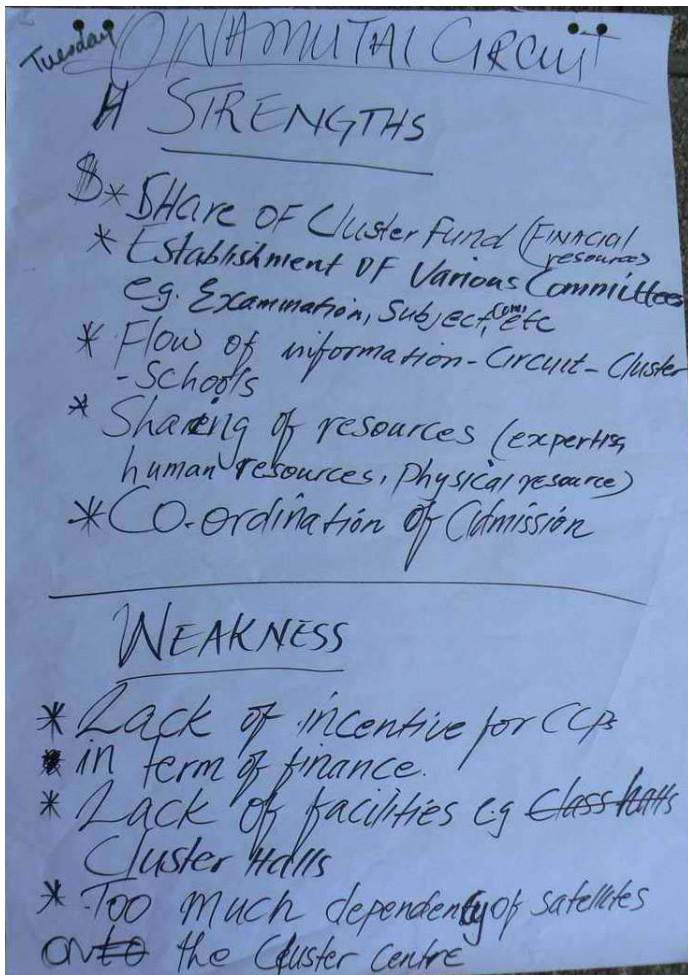 Tuesday ONAMUTAI CIRCUIT
STRENGTHS
* SHare OF Cluster fund (FINACIAL
resources
* Establishment OF Various Committees
e.g. Examination, Subject, com, etc
* Flow of information - Circuit - Cluster
- Schools
* Sharing of resources (expertise,
human resources, Physical resource)
* CO-ordination of admission
WEAKNESS
* Lack of incentive for CCPs
in term of finance.
* Lack of facilities e.g Class halls
Cluster Halls
* Too much dependenty of satellites
onto the Cluster Centre